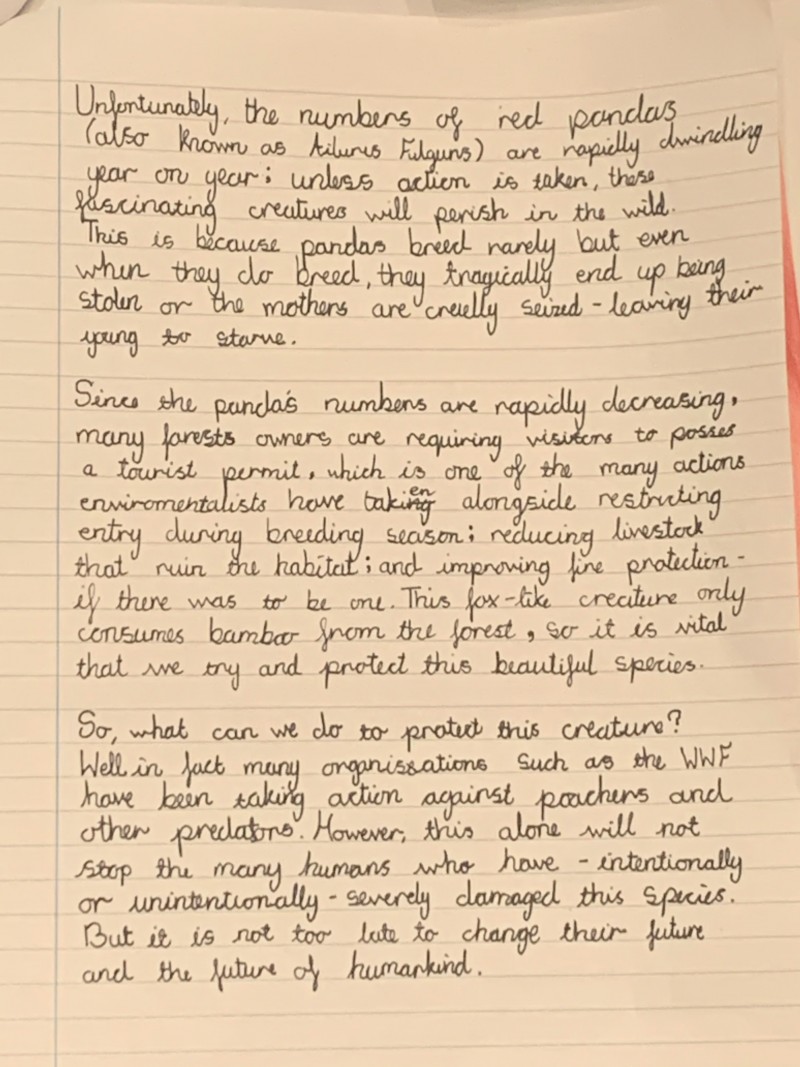 Unfortunately, the numbers of red pandas
(also known as Ailurus Fulguns) are rapidly dwindling
year on year; unless action is taken, these
fascinating creatures will perish in the wild.
This is because pandas breed rarely but even
when they do breed, they tragically end up being
stolen or the mothers are cruelly seized - leaving their
young to starve.
Since the panda's numbers are rapidly decreasing,
many forests owners are requiring visitors to posses
a tourist permit, which is one of the many actions
enviromentalists have taken alongside restricting
entry during breeding season; reducing livestock
that ruin the habitat; and improving fire protection -
if there was to be one. This fox-like creature only
consumes bamboo from the forest, so it is vital
that we try and protect this beautiful species.
So, what can we do to protect this creature?
Well in fact many organissations such as the WWF
have been taking action against poachers and
other predators. However, this alone will not
stop the many humans who have - intentionally
or unintentionally - severely damaged this species.
But it is not too late to change their future
and the future of humankind.